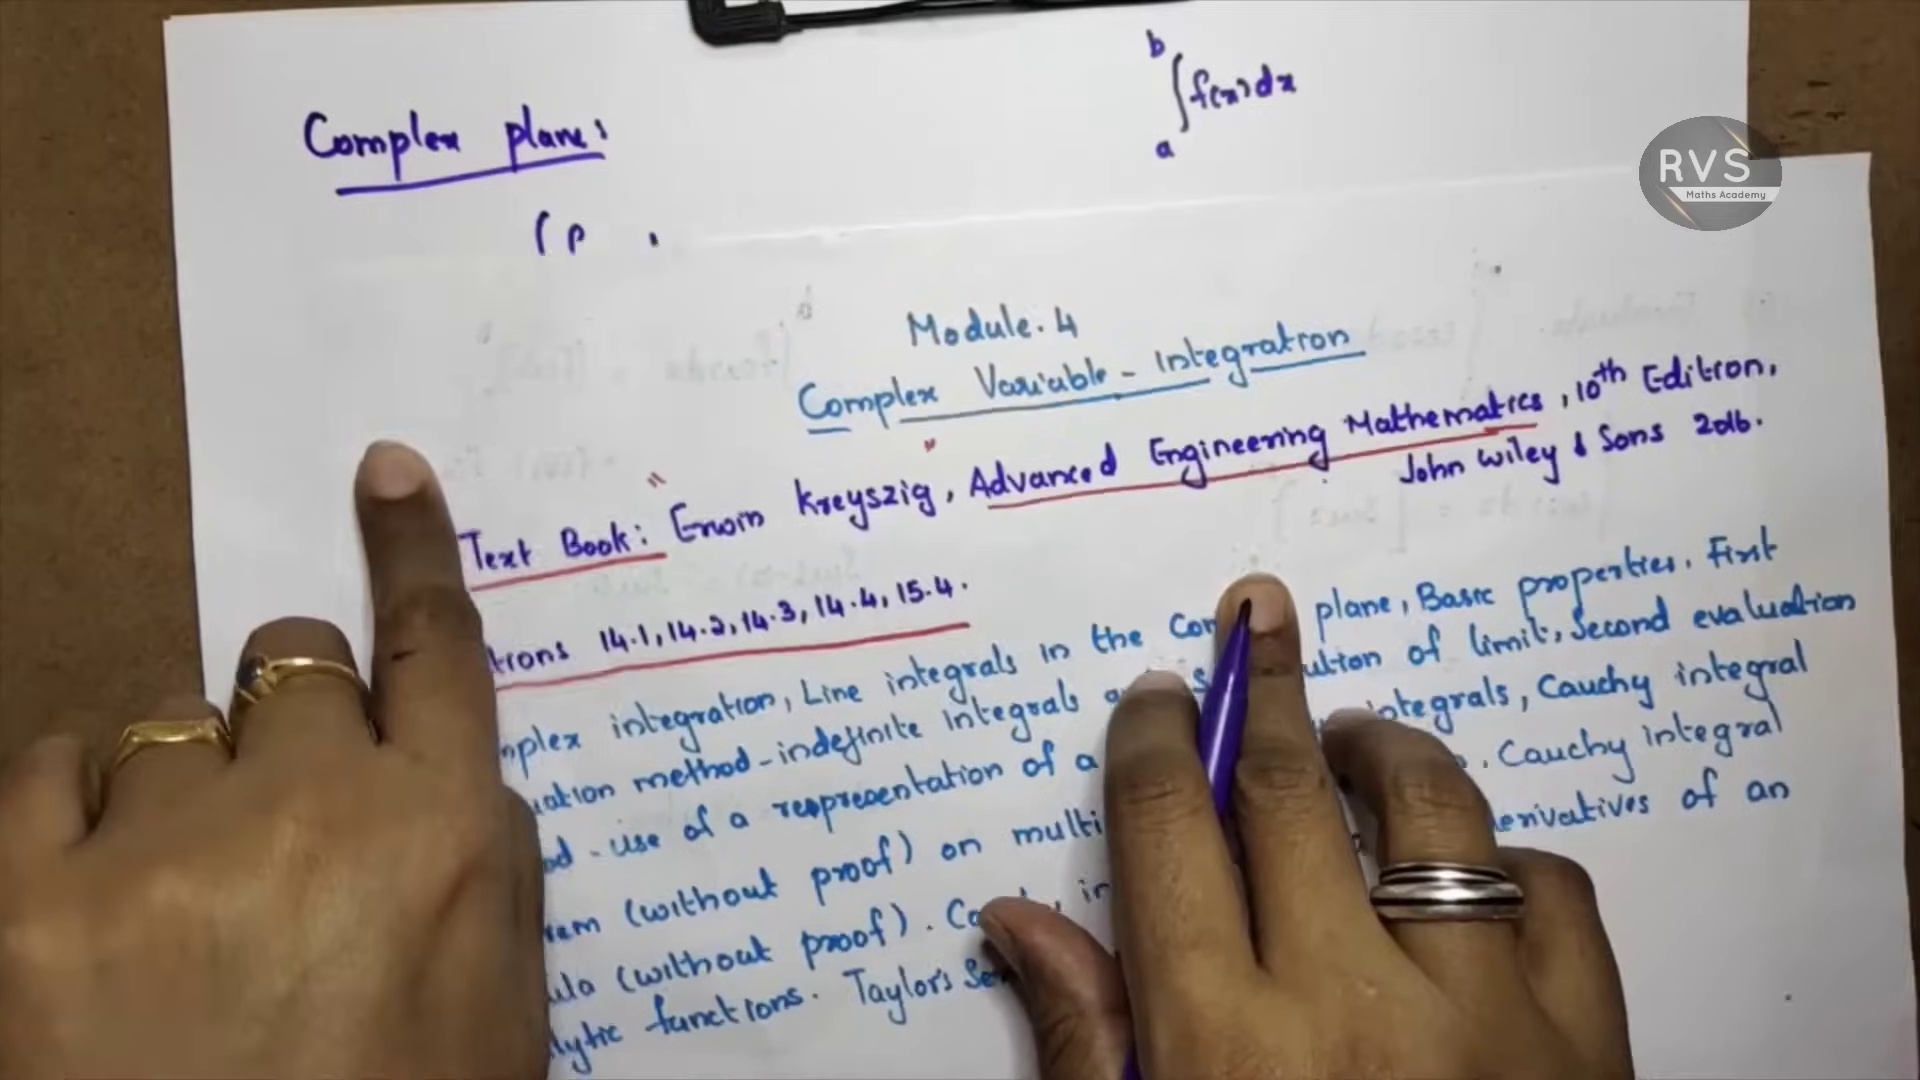 b
∫f(x)dx
a
Complex plane:
(P .
RVS
Maths Academy
Module. 4
Complex Variable - Integration
Text Book: Erwin Kreyszig, Advanced Engineering Mathematics, 10th Edition,
John Wiley & Sons 2016.
14.1, 14.2, 14.3, 14.4, 15.4.
integration, Line integrals in the plane, Basic properties. First
method - indefinite integrals of limit, Second evaluation
use of a representation of a integrals, Cauchy integral
(without proof) on Cauchy integral
(without proof). of an
functions. Taylor's